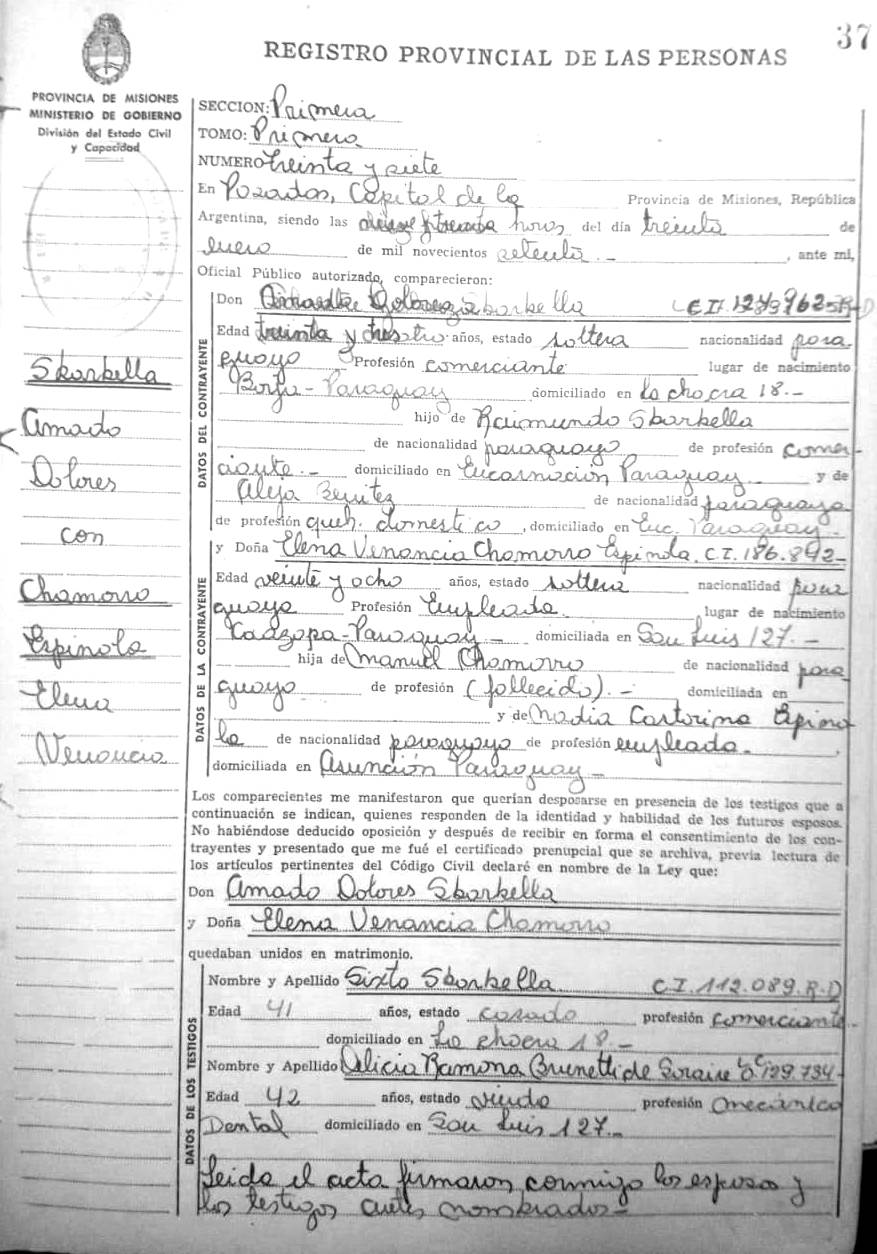 37
REGISTRO PROVINCIAL DE LAS PERSONAS
PROVINCIA DE MISIONES
MINISTERIO DE GOBIERNO
División del Estado Civil
y Capacidad
Skarkella
Amado
Dolores
con
Chamorro
Espinola
Elena
Venancia
SECCION: Primera
TOMO: Primero
NUMERO treinta y siete
En Posadas, Capital de la Provincia de Misiones, República
Argentina, siendo las horos del día treinta de
enero de mil novecientos setenta.- , ante mi,
Oficial Público autorizado, comparecieron:
DATOS DEL CONTRAYENTE
Don Skarkella C I
Edad treinta y tres años, estado soltera nacionalidad para
guayo Profesión comerciante lugar de nacimiento
Borja - Paraguay domiciliado en la chacra 18.-
hijo de Raimundo Skarkella
de nacionalidad paraguayo de profesión comer-
ciante.- domiciliado en Encarnación Paraguay y de
Aleja Benitez de nacionalidad paraguaya
de profesión queh. domestico, domiciliado en Enc. Paraguay.-
DATOS DE LA CONTRAYENTE
y Doña Elena Venancia Chamorro Espinola. C.I. 186.892-
Edad veinte y ocho años, estado soltera nacionalidad para
guaya Profesión Empleada. lugar de nacimiento
Caazapa - Paraguay - domiciliada en San Luis 127.-
hija de Manuel Chamorro de nacionalidad para
guayo de profesión (fallecido).- domiciliada en
y de Nadia Espino
la de nacionalidad paraguaya de profesión empleada.
domiciliada en Asunción Paraguay -
Los comparecientes me manifestaron que querían desposarse en presencia de los testigos que a
continuación se indican, quienes responden de la identidad y habilidad de los futuros esposos.
No habiéndose deducido oposición y después de recibir en forma el consentimiento de los con-
trayentes y presentado que me fué el certificado prenupcial que se archiva, previa lectura de
los artículos pertinentes del Código Civil declaré en nombre de la Ley que:
Don Amado Dolores Skarkella
y Doña Elena Venancia Chamorro
quedaban unidos en matrimonio.
DATOS DE LOS TESTIGOS
Nombre y Apellido Sixto Skarkella C.I. 112.089.R.D
Edad 41 años, estado casado profesión comerciante.-
domiciliado en La chacra 18.-
Nombre y Apellido Delicia Ramona Brunetti de Soraire 129.734-
Edad 42 años, estado viuda profesión mecánico
Dental domiciliado en San Luis 127.-
Leida el acta firmaron conmigo los esposos y
los testigos antes nombrados-